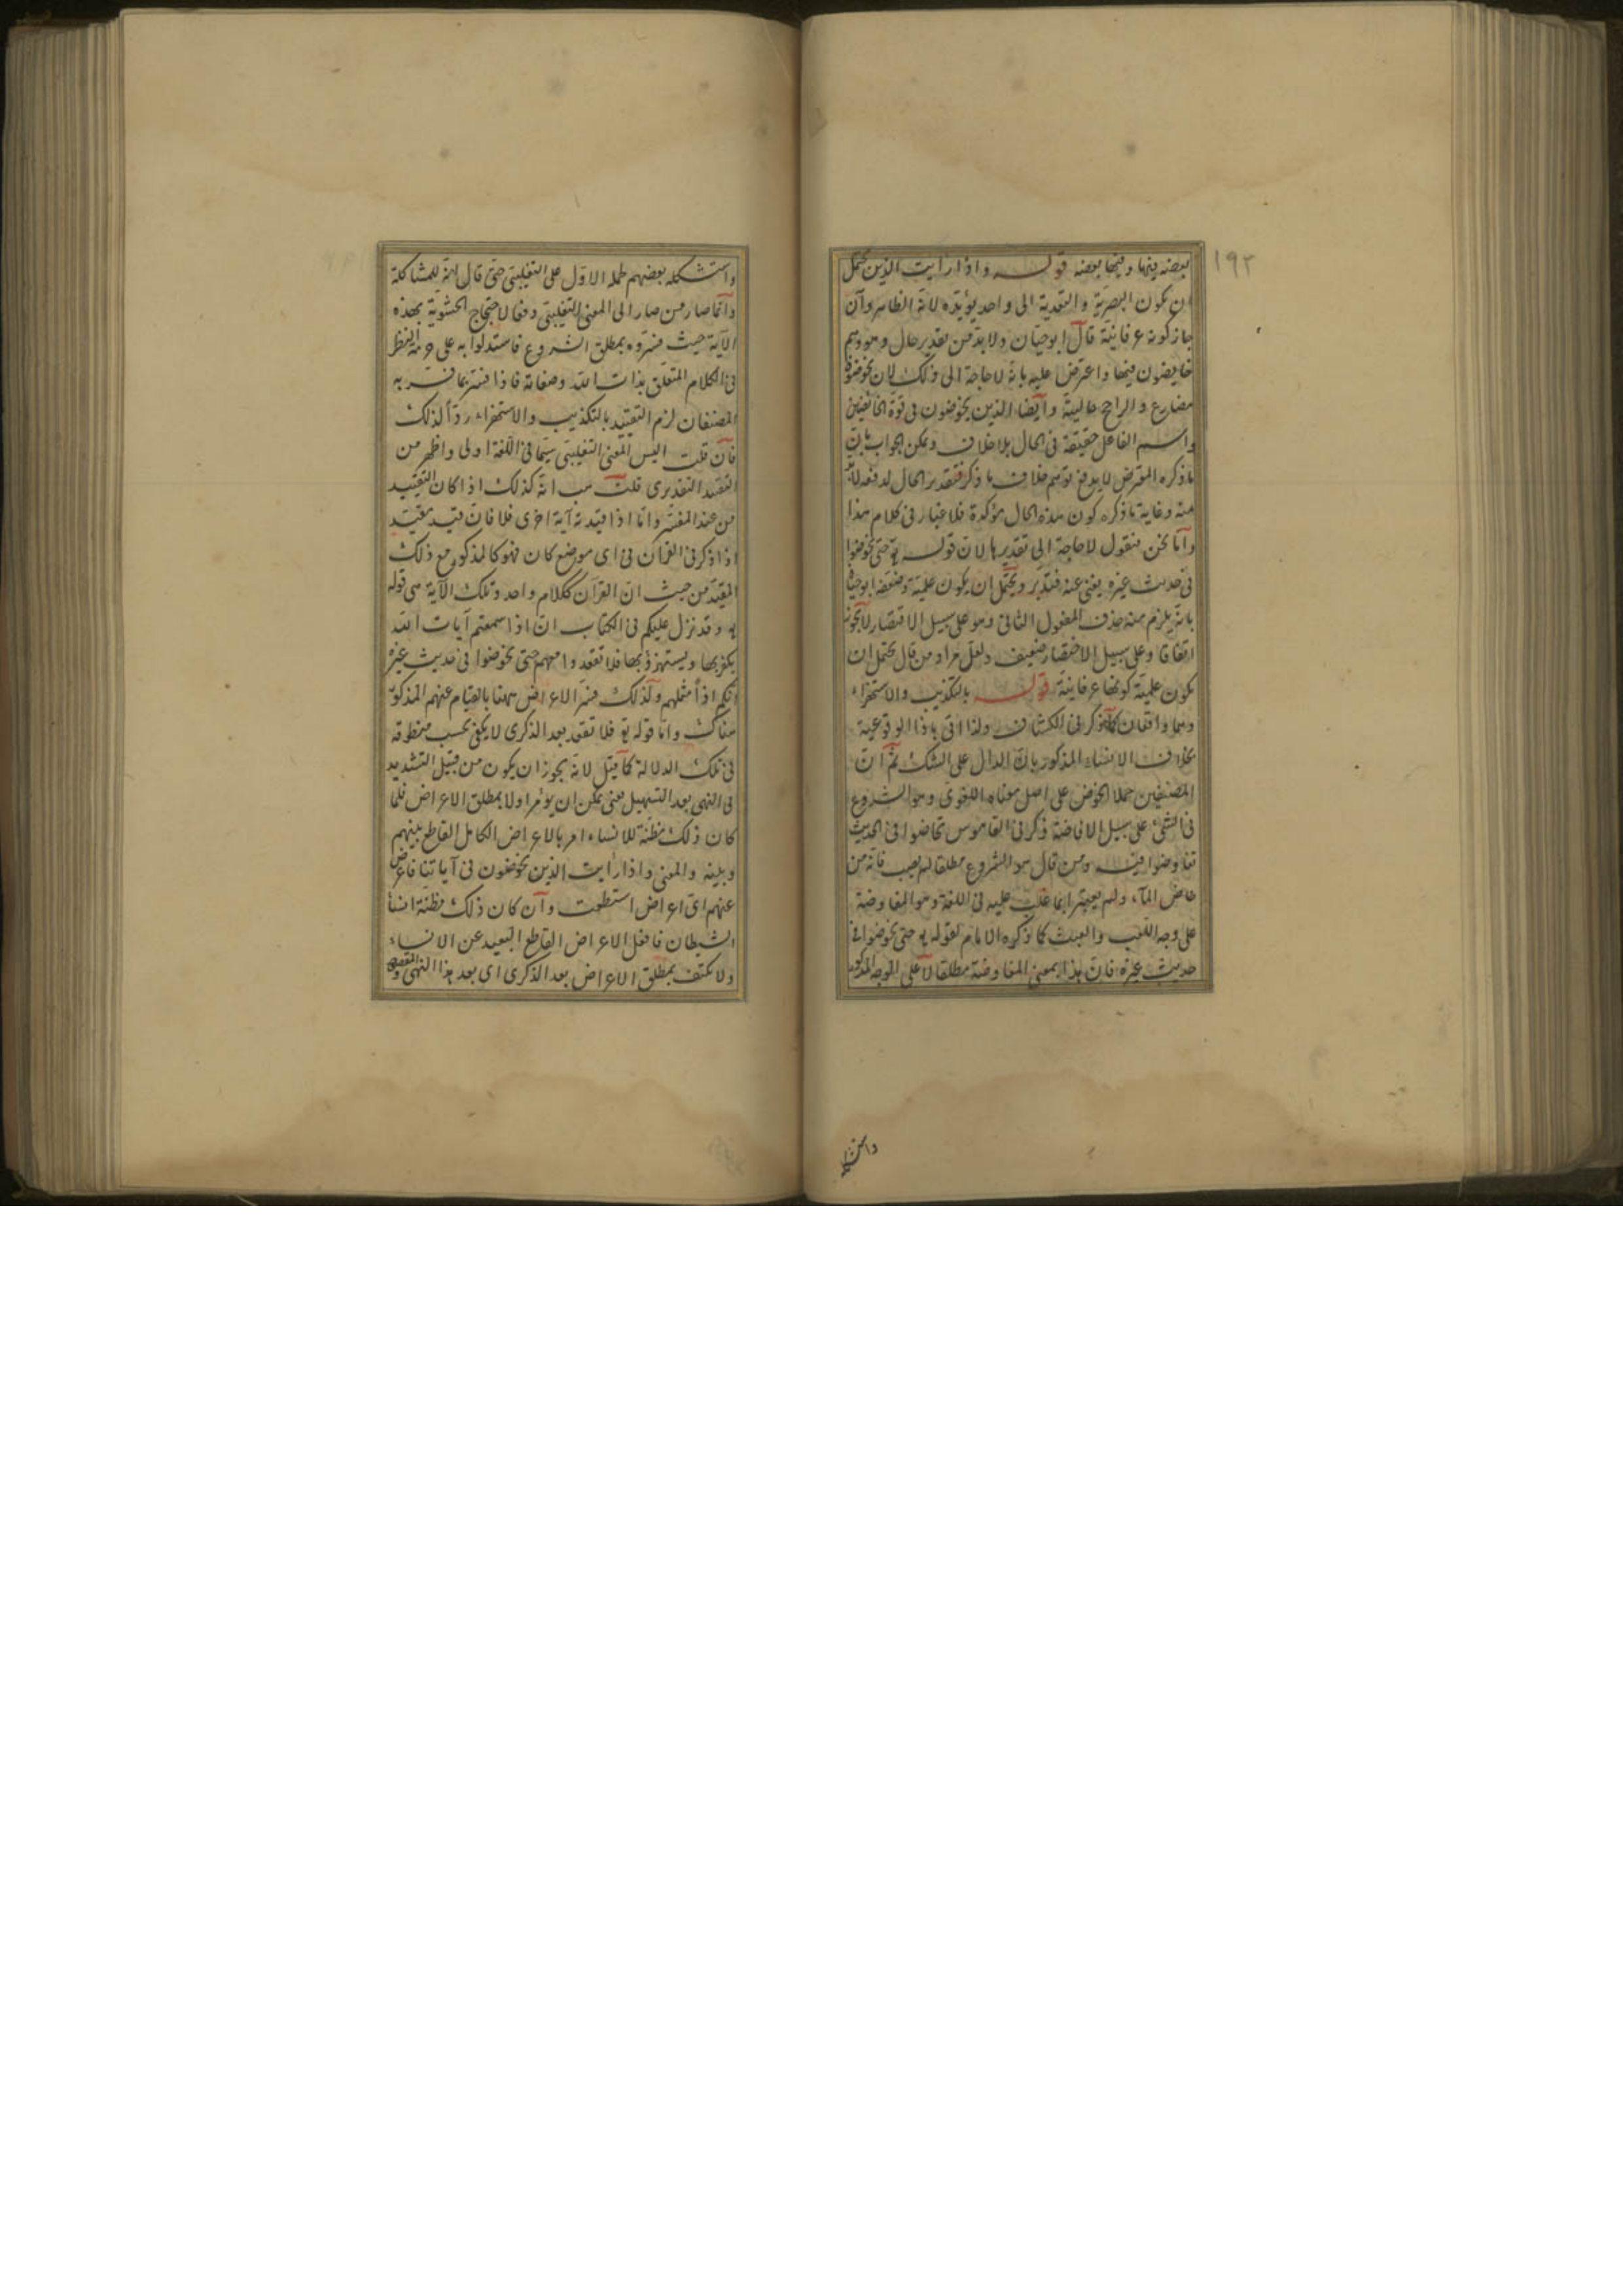 ١٩٢
لبعضه بينها وفيها بعضه قوله واذا رأيت الذين يحتمل
ان يكون البصرية والتعدية الى واحد يؤيده لانه الظاهر وان
جاز كونه عرفانية قال ابو حيان ولا بد من تقدير حال وهو وهم
خايضون فيها واعترض عليه بانه لا حاجة الى ذلك لان يخوضون
مضارع والراجح حاليته وايضا الذين يخوضون في قوة الخائضين
واسم الفاعل حقيقة في الحال بلا خلاف ويمكن الجواب بان
ما ذكره المعترض لا يدفع توهم خلاف ما ذكر فتقدير الحال لدفعه لانه
منه وغاية ما ذكره كون هذه الحال مؤكدة فلا غبار في كلام هذا
واما نحن فنقول لا حاجة الى تقديرها لان قوله تع حتى يخوضوا
في حديث غيره يغني عنه فتدبر ويحتمل ان يكون علمية وضعفه ابو حيان
بانه يلزم منه حذف المفعول الثاني وهو على سبيل الاقتصار لا يجوز
اتفاقا وعلى سبيل الاختصار ضعيف ولعل مراد من قال يحتمل ان
يكون علمية كونها عرفانية قوله بالتكذيب والاستهزاء
وهما واقعان كما ذكر في الكشاف ولذا اتى باذا الوقوعية
بخلاف الانساء المذكور بان الدال على الشك ثم ان
المصنفين حملا الخوض على اصل معناه اللغوي وهو الشروع
في الشئ على سبيل الافاضة ذكر في القاموس تخاضوا في الحديث
تفاوضوا فيه ومن قال هو الشروع مطلقا لم يصب فانه من
خاض الماء ولم يعتبرا ما غلب عليه في اللغة وهو المفاوضة
على وجه اللعب والعبث كما ذكره الامام لقوله تع حتى يخوضوا في
حديث غيره فان هذا بمعنى المفاوضة مطلقا لا على الوجه المذكور
واستشكله
واستشكله بعضهم حمله الاول على التغليبي حتى قال انه للمشاكلة
وانما صار من صار الى المعنى التغليبي دفعا لاحتجاج الحشوية بهذه
الآية حيث فسروه بمطلق الشروع فاستدلوا به على حرمة النظر
في الكلام المتعلق بذات الله وصفاته فاذا فسر بما فسر به
المصنفان لزم التقييد بالتكذيب والاستهزاء ردا لذلك
فان قلت اليس المعنى التغليبي سيما في اللغة اولى واظهر من
التقييد التقديري قلت هب انه كذلك اذا كان التقييد
من عند المفسر واما اذا قيدته آية اخرى فلا فان قيد مقيد
اذا ذكر في القرآن في اي موضع كان فهو كالمذكور مع ذلك
المقيد من حيث ان القرآن ككلام واحد وتلك الآية هي قوله
تع وقد نزل عليكم في الكتاب ان اذا سمعتم آيات الله
يكفر بها ويستهزؤ بها فلا تقعدوا معهم حتى يخوضوا في حديث غيره
انكم اذا مثلهم ولذلك فسر الاعراض ههنا بالقيام عنهم المذكور
هناك واما قوله تع فلا تقعد بعد الذكرى لا يكفي بحسب منطوقه
في تلك الدلالة كما قيل لانه يجوز ان يكون من قبيل التشديد
في النهي بعد التسهيل يعني يمكن ان يؤمر اولا بمطلق الاعراض فلما
كان ذلك مظنة للانساء امر بالاعراض الكامل القاطع بينهم
وبينه والمعنى واذا رأيت الذين يخوضون في آياتنا فاعرض
عنهم اي اعراض استطعت وان كان ذلك مظنة انساء
الشيطان فافعل الاعراض القاطع البعيد عن الانساء
ولا تكتف بمطلق الاعراض بعد الذكرى اي بعد هذا النهي